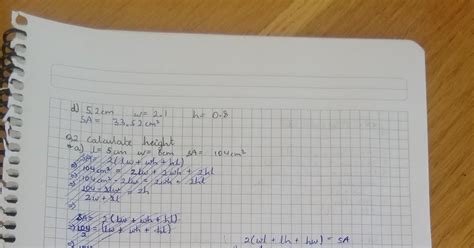 d) 5.2cm w= 2.1 h= 0.8
SA= 33.52cm²
Q2 Calculate height
a) l= 5cm w= 8cm SA= 104cm²
SA= 2(lw + wh + hl)
104cm² = 2lw + 2wh + 2hl
104cm² - 2lw = 2wh + 2hl
104 - 2lw = 2h
2w + 2l
SA = 2 (lw + wh + hl)
104 = (lw + wh + hl)
2
2(wl + lh + hw) = SA